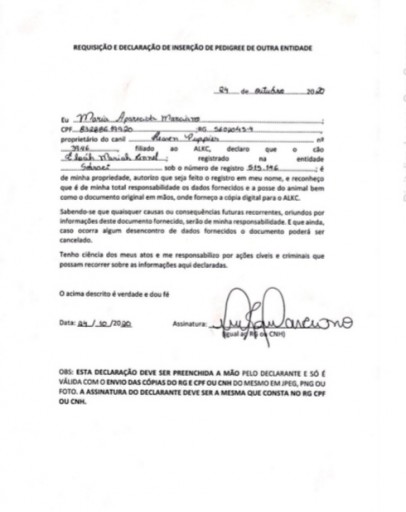 REQUISIÇÃO E DECLARAÇÃO DE INSERÇÃO DE PEDIGREE DE OUTRA ENTIDADE
29 de outubro 2020
Eu Maria Aparecida
CPF RG
proprietário do canil nº
filiado ao ALKC, declaro que o cão
registrado na entidade
Sobraci sob o número de registro ; é
de minha propriedade, autorizo que seja feito o registro em meu nome, e reconheço
que é de minha total responsabilidade os dados fornecidos e a posse do animal bem
como o documento original em mãos, onde forneço a cópia digital para o ALKC.
Sabendo-se que quaisquer causas ou consequências futuras recorrentes, oriundos por
informações deste documento fornecido, serão de minha responsabilidade. E que ainda,
caso ocorra algum desencontro de dados fornecidos o documento poderá ser
cancelado.
Tenho ciência dos meus atos e me responsabilizo por ações cíveis e criminais que
possam recorrer sobre as informações aqui declaradas.
O acima descrito é verdade e dou fé
Data: 29/10/2020 Assinatura:
(Igual ao RG ou CNH)
OBS: ESTA DECLARAÇÃO DEVE SER PREENCHIDA A MÃO PELO DECLARANTE E SÓ É
VÁLIDA COM O ENVIO DAS CÓPIAS DO RG E CPF OU CNH DO MESMO EM JPEG, PNG OU
FOTO. A ASSINATURA DO DECLARANTE DEVE SER A MESMA QUE CONSTA NO RG CPF
OU CNH.